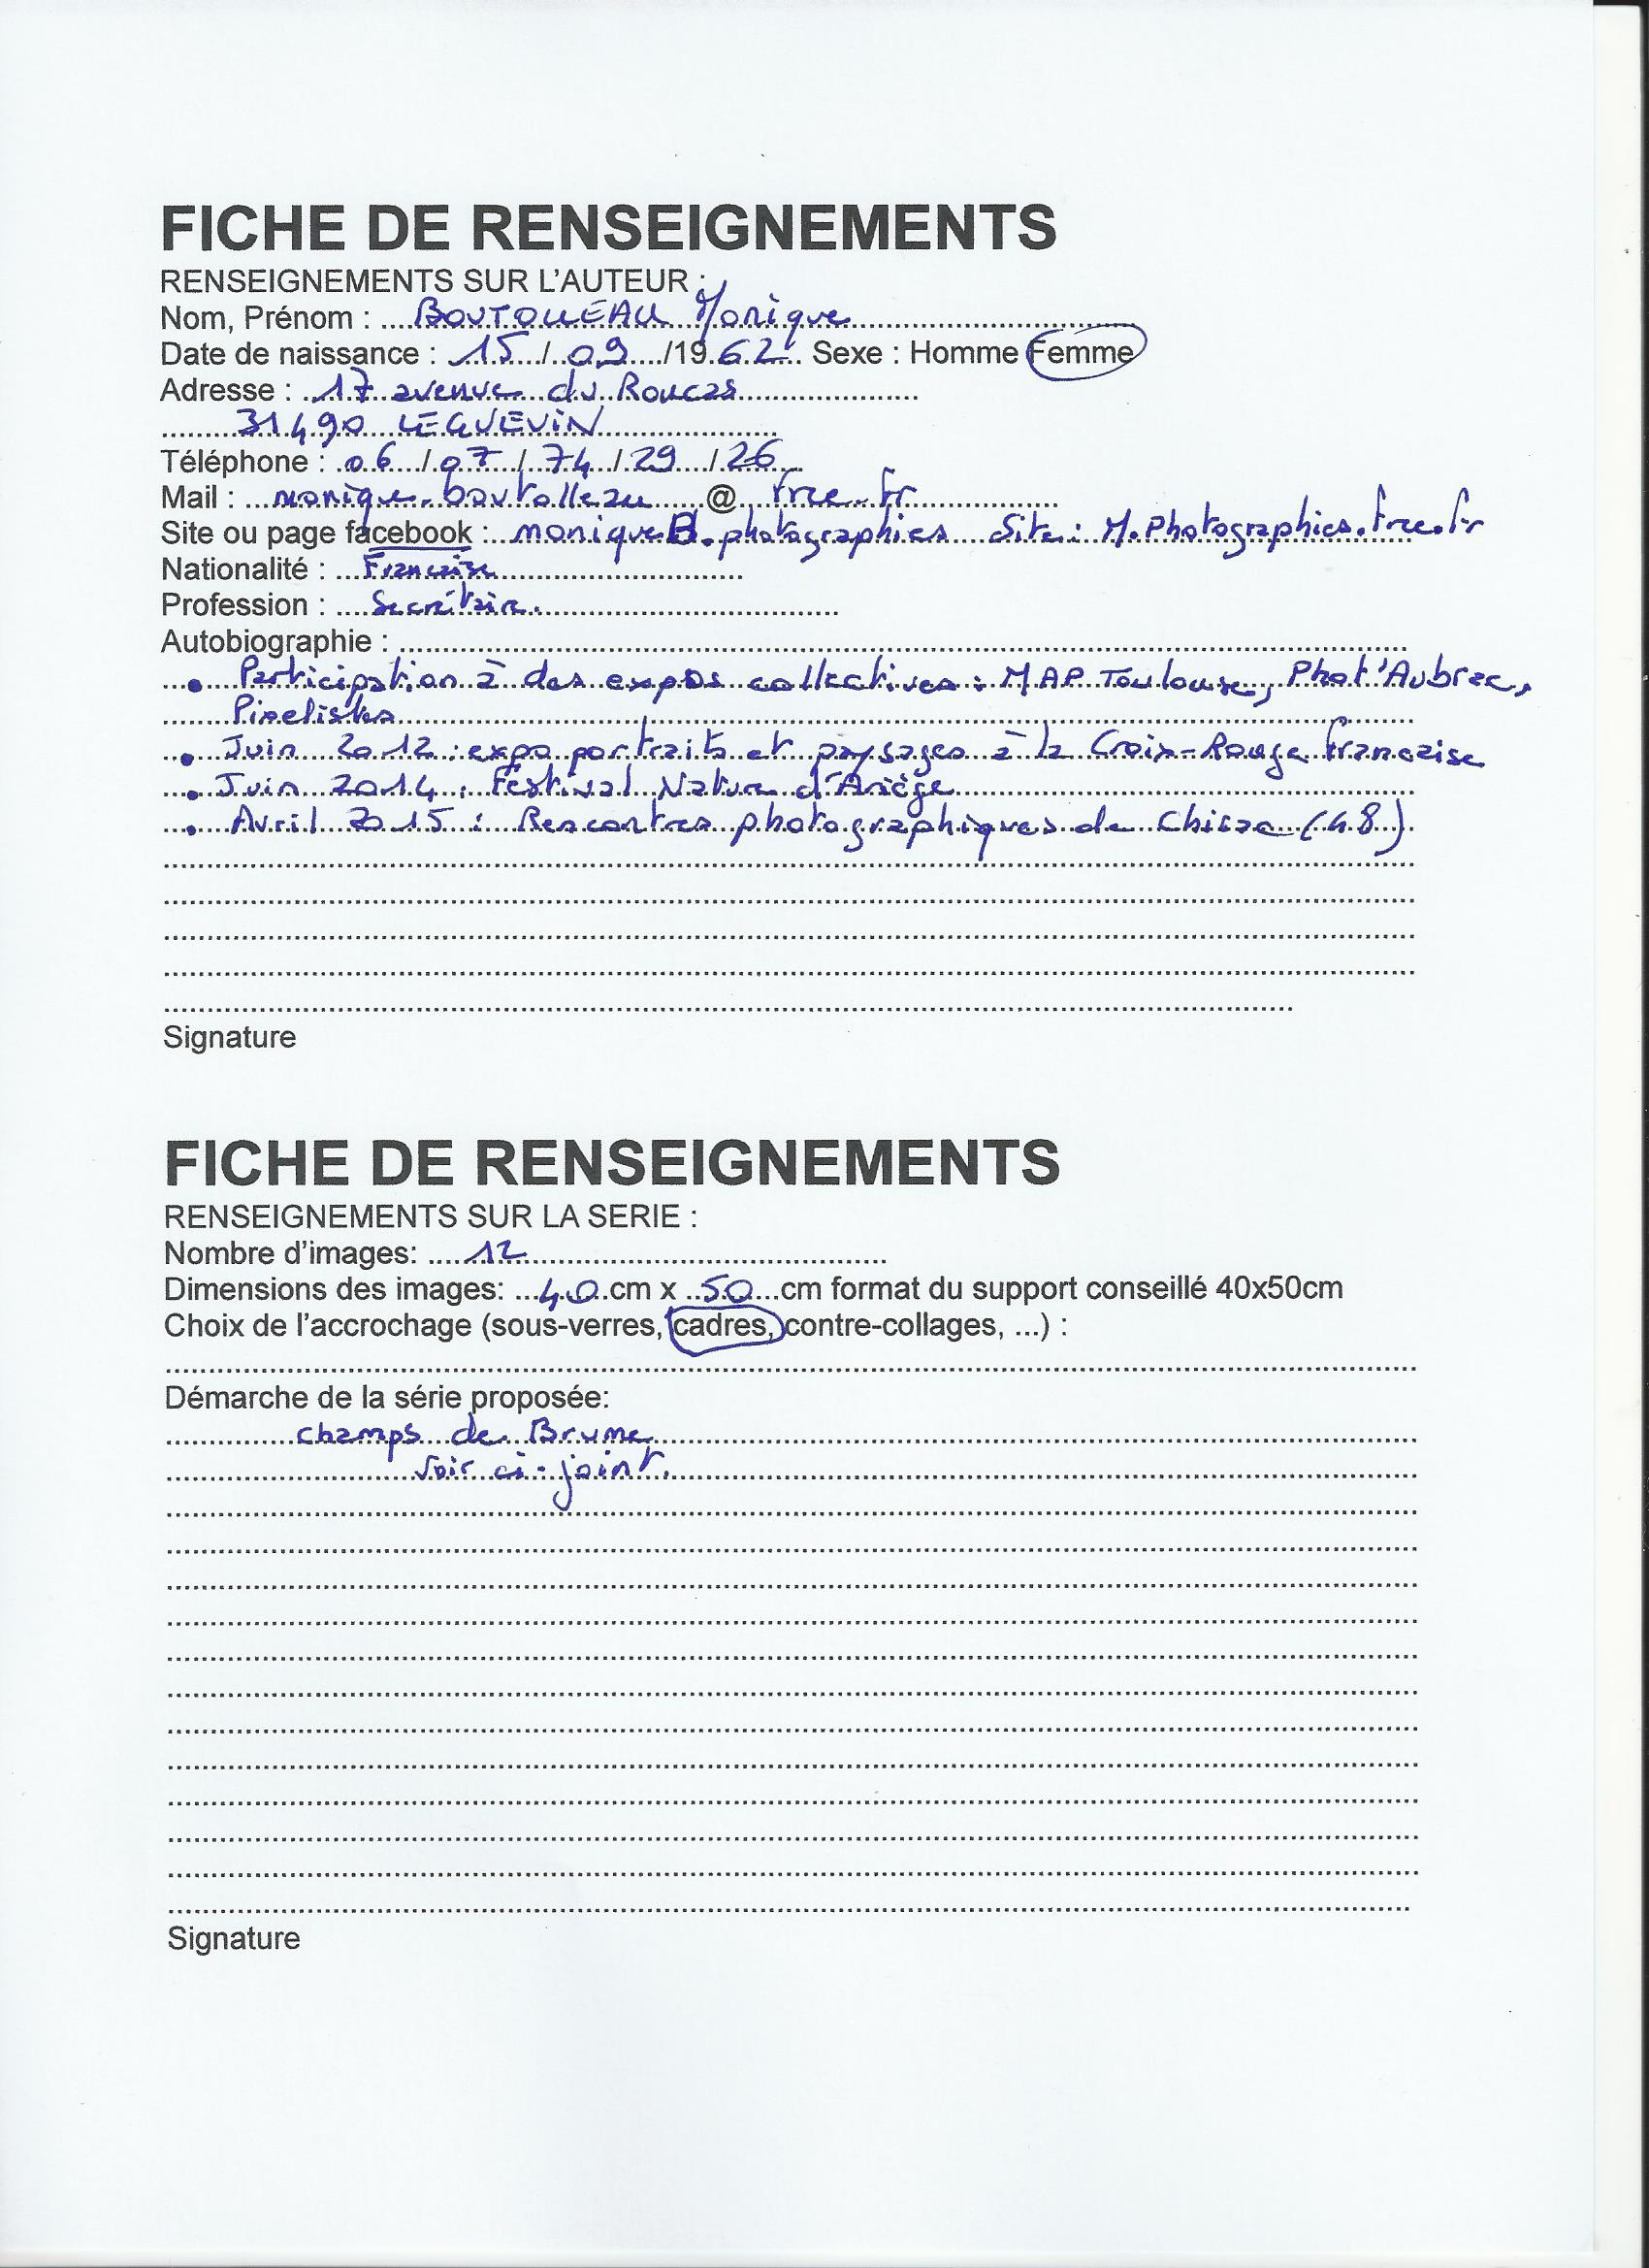 FICHE DE RENSEIGNEMENTS
RENSEIGNEMENTS SUR L'AUTEUR :
Nom, Prénom : BOUTOLLEAU Monique
Date de naissance : 15 / 09 /1962 Sexe : Homme Femme
Adresse : 17 avenue du Roucas
31490 LEGUEVIN
Téléphone : 06 / 07 / 74 / 29 / 26
Mail : monique.boutolleau @ free.fr
Site ou page facebook : moniqueB.photographies Site : M.Photographies.free.fr
Nationalité : Française
Profession : Secrétaire.
Autobiographie :
• Participation à des expos collectives : MAP Toulouse, Phot'Aubrac,
Pixelistes
• Juin 2012 : expo portraits et paysages à la Croix-Rouge française
• Juin 2014 : Festival Nature d'Ariège
• Avril 2015 : Rencontres photographiques de Chirac (48)
Signature
FICHE DE RENSEIGNEMENTS
RENSEIGNEMENTS SUR LA SERIE :
Nombre d'images: 12
Dimensions des images: 40 cm x 50 cm format du support conseillé 40x50cm
Choix de l'accrochage (sous-verres, cadres, contre-collages, ...) :
Démarche de la série proposée:
champs de Brume
Voir ci-joint.
Signature